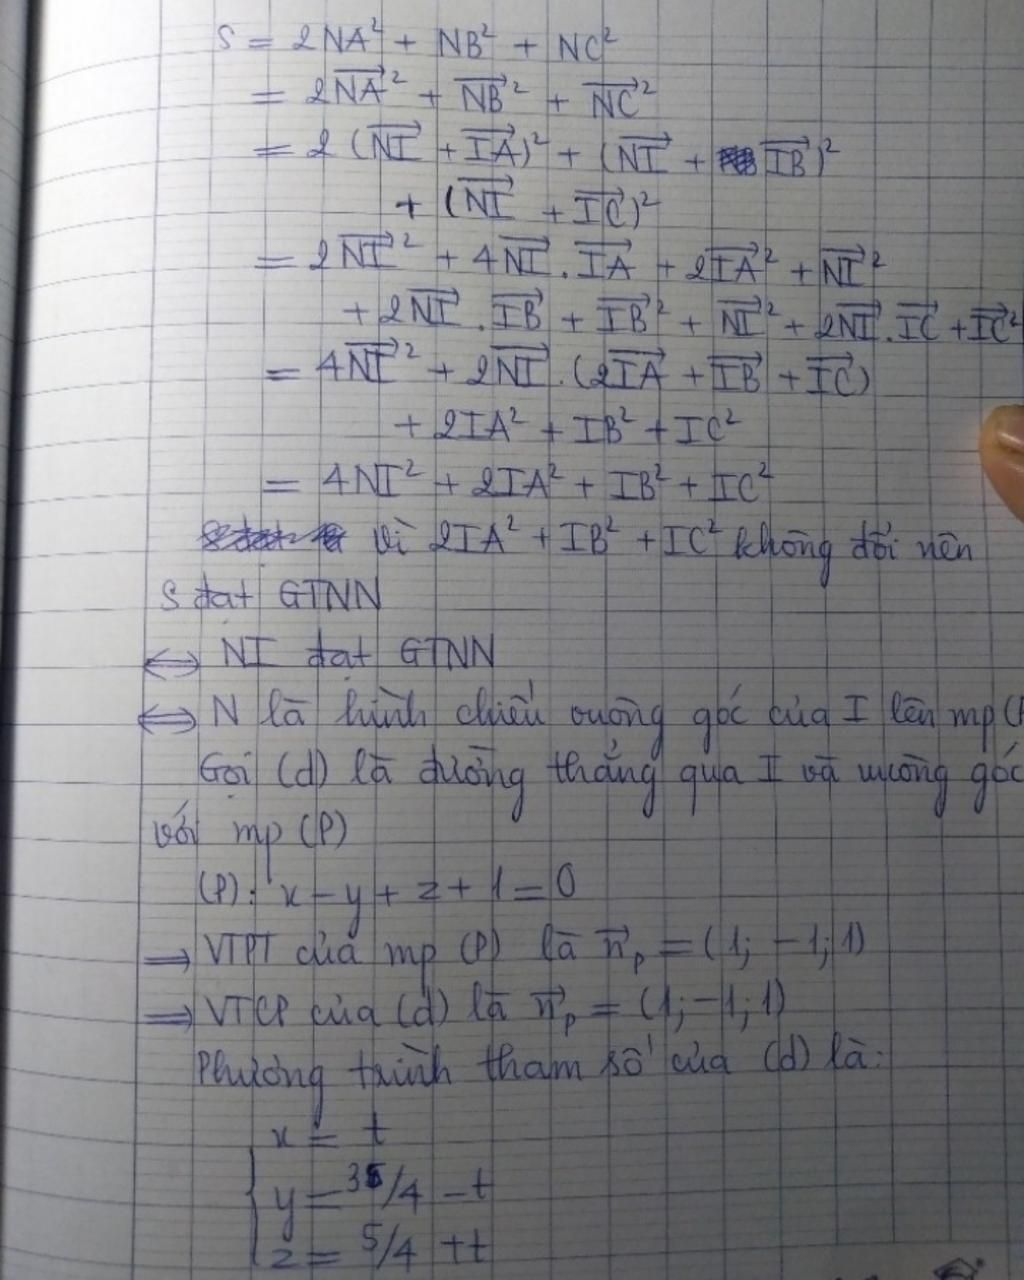 S = 2NA² + NB² + NC²
= 2\overrightarrow{NA}² + \overrightarrow{NB}² + \overrightarrow{NC}²
= 2(\overrightarrow{NI} + \overrightarrow{IA})² + (\overrightarrow{NI} + \overrightarrow{IB})²
+ (\overrightarrow{NI} + \overrightarrow{IC})²
= 2\overrightarrow{NI}² + 4\overrightarrow{NI}.\overrightarrow{IA} + 2\overrightarrow{IA}² + \overrightarrow{NI}²
+ 2\overrightarrow{NI}.\overrightarrow{IB} + \overrightarrow{IB}² + \overrightarrow{NI}² + 2\overrightarrow{NI}.\overrightarrow{IC} + \overrightarrow{IC}²
= 4\overrightarrow{NI}² + 2\overrightarrow{NI}.(2\overrightarrow{IA} + \overrightarrow{IB} + \overrightarrow{IC})
+ 2IA² + IB² + IC²
= 4NI² + 2IA² + IB² + IC²
Vì 2IA² + IB² + IC² không đổi nên
S đạt GTNN
⟺ NI đạt GTNN
⟺ N là hình chiếu vuông góc của I lên mp (
Gọi (d) là đường thẳng qua I và vuông góc
với mp (P)
(P): x - y + z + 1 = 0
⟹ VTPT của mp (P) là \overrightarrow{n}_p = (1; -1; 1)
⟹ VTCP của (d) là \overrightarrow{n}_p = (1; -1; 1)
Phương trình tham số của (d) là:
x = t
y = 35/4 - t
z = 5/4 + t